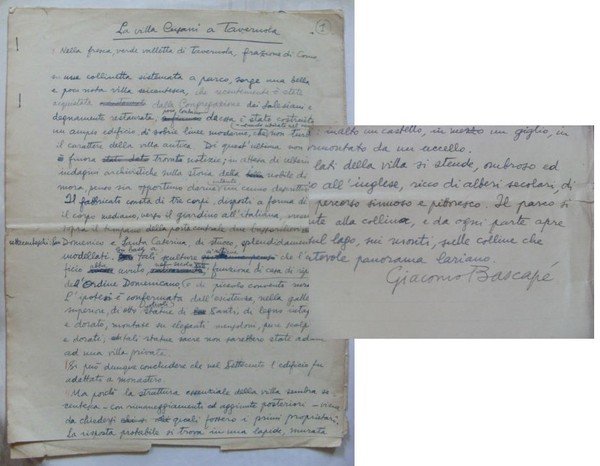 La villa Cupani a Tavernola
1
Nella fresca, verde valletta di Tavernola, frazione di Como
su una collinetta sistemata a parco, sorge una bella
e poco nota villa seicentesca, che recentemente è stata
acquistata dalla Congregazione dei Salesiani e
degnamente restaurata, è stato costruito
un ampio edificio di sobrie linee moderne, che non tur
il carattere della villa antica. Di quest'ultima non
è finora notizie, in attesa di
indagini archivistiche sulla storia della nobile di
mora, penso sia opportuno darne un cenno descrittivo
Il fabbricato consta di tre corpi, disposti a forma di
il corpo mediano, verso il giardino all'italiana,
sopra il timpano della porta centrale due
Domenico e Santa Caterina, di stucco, splendidamente
modellati. tali sculture che l'e
dificio avuto, funzione di casa di
dell'Ordine Domenicano, o di piccolo convento
L'ipotesi è confermata dall'esistenza, nella galle
superiore, di statue di Santi, di legno
e dorato, montate su eleganti mensoloni, pure scolp
e dorati; tali statue sacre non sarebbero state
ad una villa privata.
Si può dunque concludere che nel Settecento l'edificio fu
adattato a monastero.
Ma poiché la struttura essenziale della villa sembra se
centesca - con rimaneggiamenti ed aggiunte posteriori -
da chiedersi quali fossero i primi proprietari
La risposta probabile si trova in una lapide, murata
in alto un castello, in mezzo un giglio, in
sormontato da un uccello.
lati della villa si stende, ombroso ed
all'inglese, ricco di alberi secolari, di
percorso sinuoso e pittoresco. Il parco si
nte alla collina, e da ogni parte apre
sul lago, sui monti, sulle colline che
panorama lariano.
Giacomo Bascapé